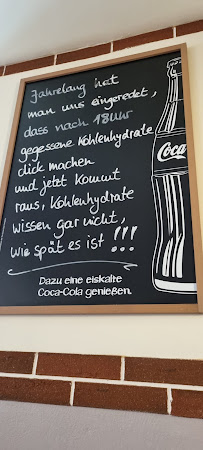 Jahrelang hat
man uns eingeredet,
dass nach 18 Uhr
gegessene Kohlenhydrate
dick machen
und jetzt kommt
raus, Kohlenhydrate
wissen gar nicht,
wie spät es ist !!!
Coca
Dazu eine eiskalte
Coca-Cola genießen.